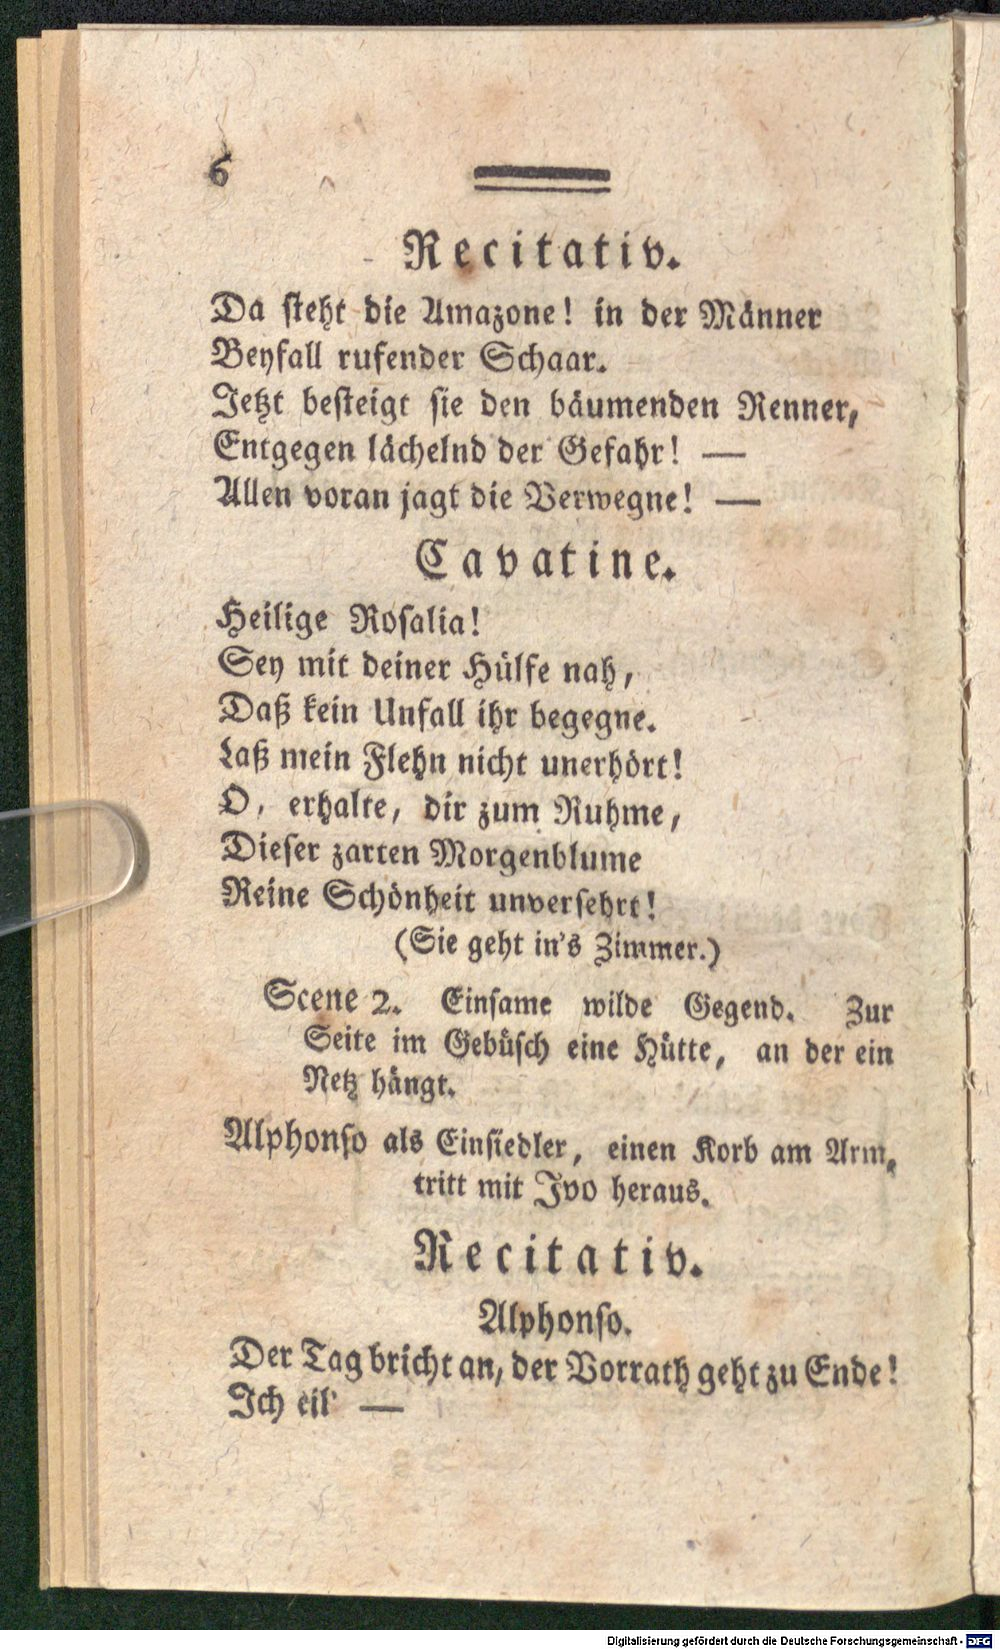 6
Recitativ.
Da steht die Amazone! in der Männer
Beyfall rufender Schaar.
Jetzt besteigt sie den bäumenden Renner,
Entgegen lächelnd der Gefahr! —
Allen voran jagt die Verwegne! —
Cavatine.
Heilige Rosalia!
Sey mit deiner Hülfe nah,
Daß kein Unfall ihr begegne.
Laß mein Flehn nicht unerhört!
O, erhalte, dir zum Ruhme,
Dieser zarten Morgenblume
Reine Schönheit unversehrt!
(Sie geht in's Zimmer.)
Scene 2. Einsame wilde Gegend. Zur
Seite im Gebüsch eine Hütte, an der ein
Netz hängt.
Alphonso als Einsiedler, einen Korb am Arm,
tritt mit Ivo heraus.
Recitativ.
Alphonso.
Der Tag bricht an, der Vorrath geht zu Ende!
Ich eil' —
Digitalisierung gefördert durch die Deutsche Forschungsgemeinschaft - DFG